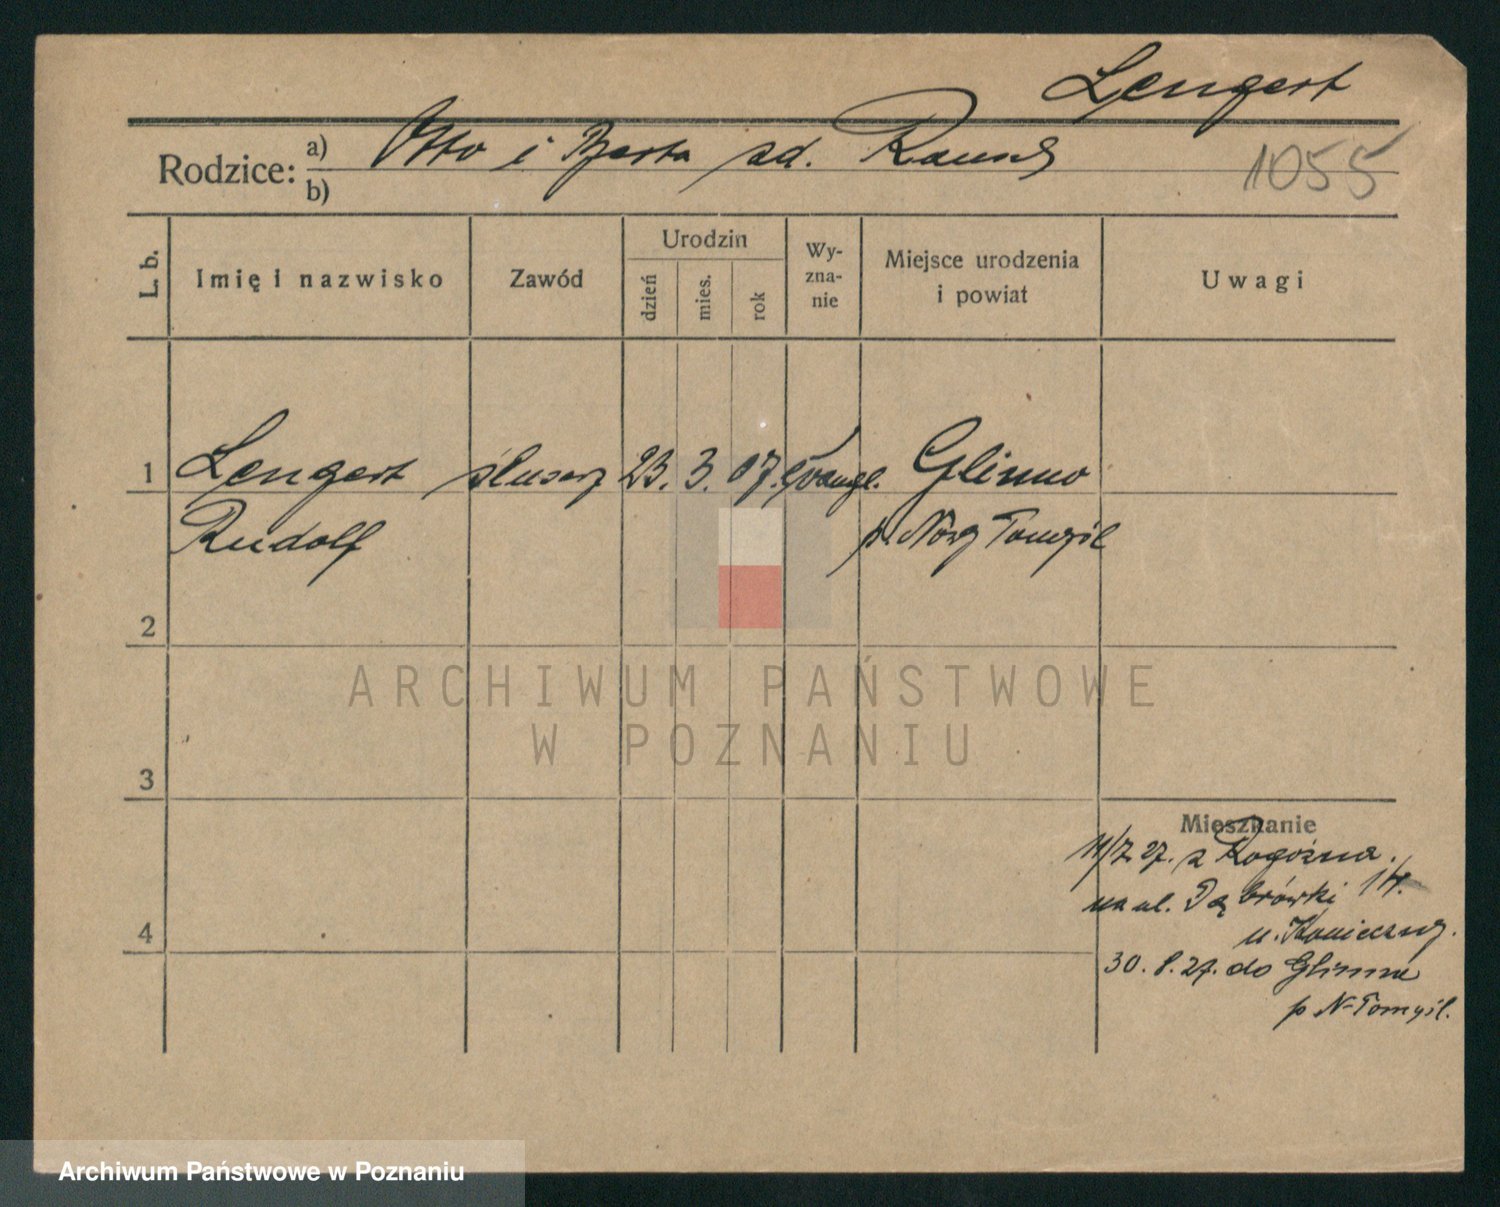 Lengert
Rodzice: a) Otto i Berta zd.
b)
1055
L. b.
Imię i nazwisko
Zawód
Urodzin
dzień
mies.
rok
Wy-
zna-
nie
Miejsce urodzenia
i powiat
Uwagi
1 Lengert ślusarz 23. 3. 07. Ewangl. Glinno
Rudolf p. Nowy Tomyśl
2
ARCHIWUM PAŃSTWOWE
W POZNANIU
3
Mieszkanie
11/7 27. z Rogoźna.
na ul. Dąbrówki 14.
u. Konieczny.
4
30. 8. 27. do Glinna
p N-Tomyśl.
Archiwum Państwowe w Poznaniu